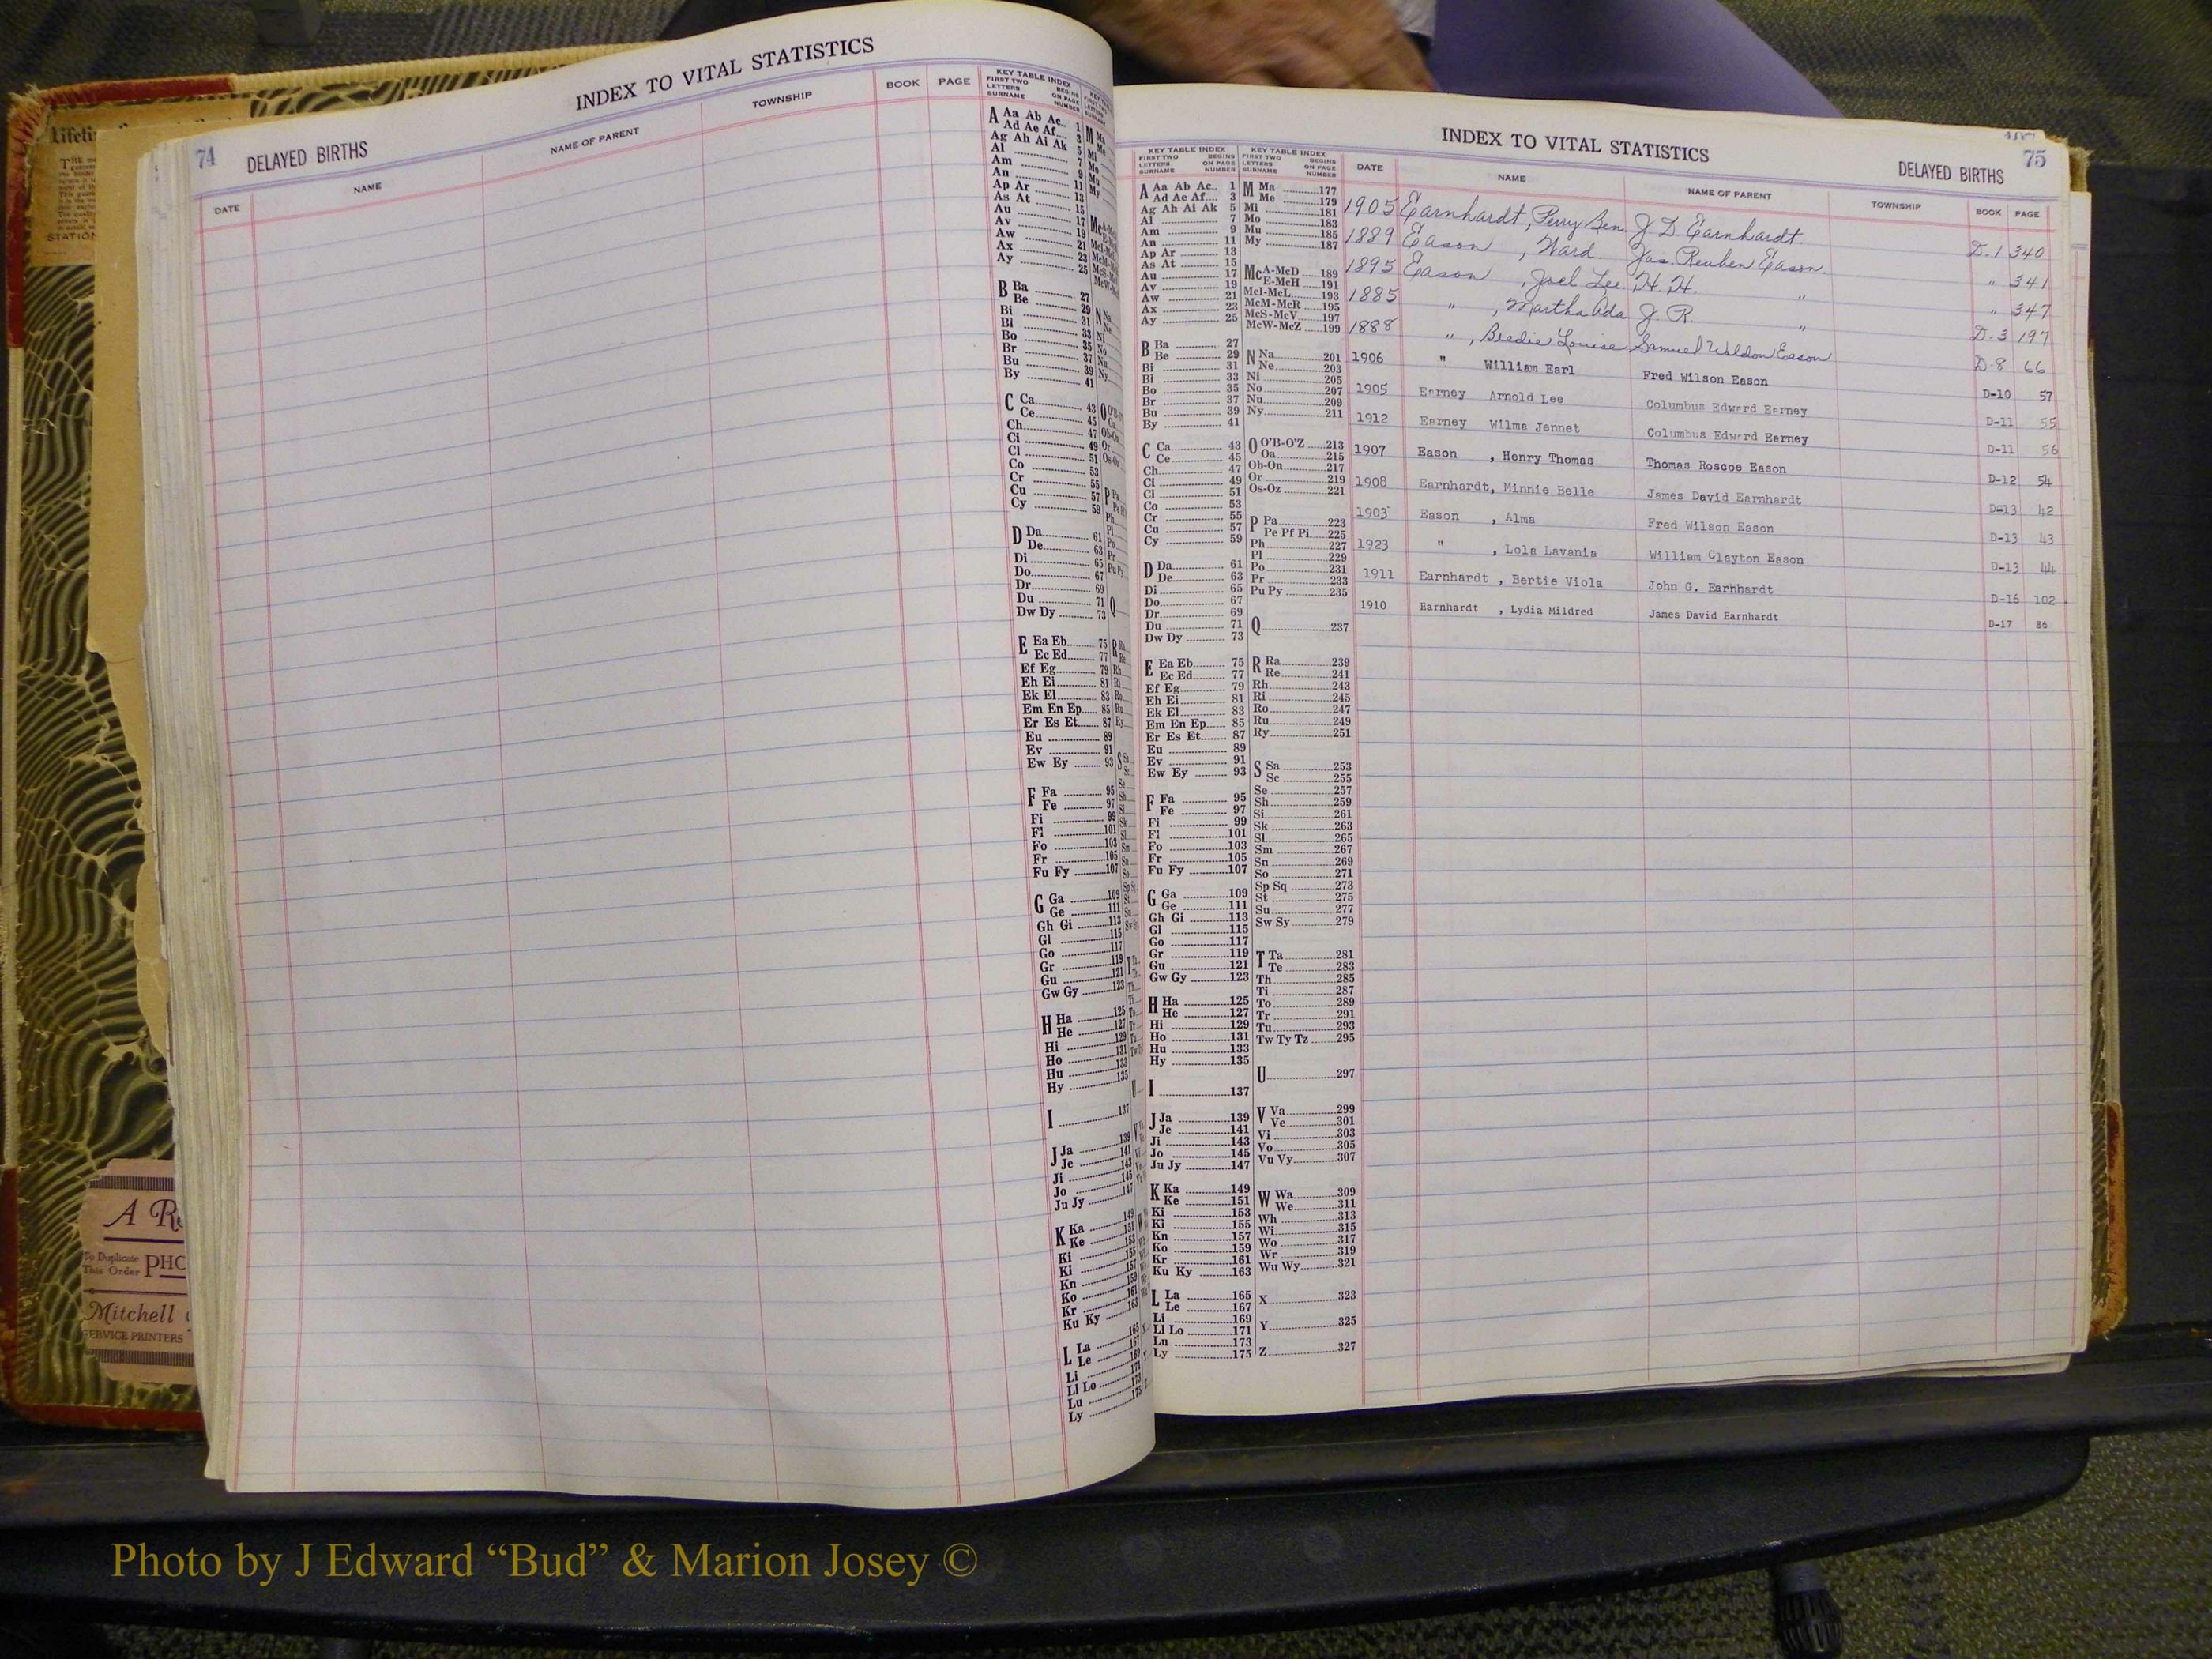 INDEX TO VITAL STATISTICS
74 DELAYED BIRTHS
DATE NAME NAME OF PARENT TOWNSHIP BOOK PAGE
KEY TABLE INDEX
FIRST TWO LETTERS SURNAME BEGINS ON PAGE NUMBER
A Aa Ab Ac 1
Ad Ae Af 3
Ag Ah Ai Ak 5
Al 7
Am 9
An 11
Ap Ar 13
As At 15
Au 17
Av 19
Aw 21
Ax 23
Ay 25
B Ba 27
Be 29
Bi 31
Bl 33
Bo 35
Br 37
Bu 39
By 41
C Ca 43
Ce 45
Ch 47
Ci 49
Cl 51
Co 53
Cr 55
Cu 57
Cy 59
D Da 61
De 63
Di 65
Do 67
Dr 69
Du 71
Dw Dy 73
E Ea Eb 75
Ec Ed 77
Ef Eg 79
Eh Ei 81
Ek El 83
Em En Ep 85
Er Es Et 87
Eu 89
Ev 91
Ew Ey 93
F Fa 95
Fe 97
Fi 99
Fl 101
Fo 103
Fr 105
Fu Fy 107
G Ga 109
Ge 111
Gh Gi 113
Gl 115
Go 117
Gr 119
Gu 121
Gw Gy 123
H Ha 125
He 127
Hi 129
Ho 131
Hu 133
Hy 135
I 137
J Ja 139
Je 141
Ji 143
Jo 145
Ju Jy 147
K Ka 149
Ke 151
Ki 153
Kl 155
Kn 157
Ko 159
Kr 161
Ku Ky 163
L La 165
Le 167
Li 169
Ll Lo 171
Lu 173
Ly 175
INDEX TO VITAL STATISTICS
DELAYED BIRTHS 75
KEY TABLE INDEX KEY TABLE INDEX
FIRST TWO LETTERS SURNAME BEGINS ON PAGE NUMBER FIRST TWO LETTERS SURNAME BEGINS ON PAGE NUMBER
DATE NAME NAME OF PARENT TOWNSHIP BOOK PAGE
A Aa Ab Ac 1
Ad Ae Af 3
Ag Ah Ai Ak 5
Al 7
Am 9
An 11
Ap Ar 13
As At 15
Au 17
Av 19
Aw 21
Ax 23
Ay 25
B Ba 27
Be 29
Bi 31
Bl 33
Bo 35
Br 37
Bu 39
By 41
C Ca 43
Ce 45
Ch 47
Ci 49
Cl 51
Co 53
Cr 55
Cu 57
Cy 59
D Da 61
De 63
Di 65
Do 67
Dr 69
Du 71
Dw Dy 73
E Ea Eb 75
Ec Ed 77
Ef Eg 79
Eh Ei 81
Ek El 83
Em En Ep 85
Er Es Et 87
Eu 89
Ev 91
Ew Ey 93
F Fa 95
Fe 97
Fi 99
Fl 101
Fo 103
Fr 105
Fu Fy 107
G Ga 109
Ge 111
Gh Gi 113
Gl 115
Go 117
Gr 119
Gu 121
Gw Gy 123
H Ha 125
He 127
Hi 129
Ho 131
Hu 133
Hy 135
I 137
J Ja 139
Je 141
Ji 143
Jo 145
Ju Jy 147
K Ka 149
Ke 151
Ki 153
Kl 155
Kn 157
Ko 159
Kr 161
Ku Ky 163
L La 165
Le 167
Li 169
Ll Lo 171
Lu 173
Ly 175
M Ma 177
Me 179
Mi 181
Mo 183
Mu 185
My 187
McA-McD 189
McE-McH 191
McI-McL 193
McM-McR 195
McS-McV 197
McW-McZ 199
N Na 201
Ne 203
Ni 205
No 207
Nu 209
Ny 211
O O'B-O'Z 213
Oa 215
Ob-On 217
Or 219
Os-Oz 221
P Pa 223
Pe Pf Pi 225
Ph 227
Pl 229
Po 231
Pr 233
Pu Py 235
Q 237
R Ra 239
Re 241
Rh 243
Ri 245
Ro 247
Ru 249
Ry 251
S Sa 253
Sc 255
Se 257
Sh 259
Si 261
Sk 263
Sl 265
Sm 267
Sn 269
So 271
Sp Sq 273
St 275
Su 277
Sw Sy 279
T Ta 281
Te 283
Th 285
Ti 287
To 289
Tr 291
Tu 293
Tw Ty Tz 295
U 297
V Va 299
Ve 301
Vi 303
Vo 305
Vu Vy 307
W Wa 309
We 311
Wh 313
Wi 315
Wo 317
Wr 319
Wu Wy 321
X 323
Y 325
Z 327
1905 Earnhardt, Perry Ben. J. D. Earnhardt. D-1 340
1889 Eason , Ward. Jas. Reuben Eason. " 341
1895 Eason , Joel Lee. H. H. " " 347
1885 " , Martha Ada J. R. " D-3 197
1888 " , Beedie Louise Samuel Waldon Eason D-8 66
1906 " William Earl Fred Wilson Eason D-10 57
1905 Earney Arnold Lee Columbus Edward Earney D-11 55
1912 Earney Wilma Jennet Columbus Edward Earney D-11 56
1907 Eason , Henry Thomas Thomas Roscoe Eason D-12 54
1908 Earnhardt, Minnie Belle James David Earnhardt D-13 42
1903 Eason , Alma Fred Wilson Eason D-13 43
1923 " , Lola Lavania William Clayton Eason D-13 44
1911 Earnhardt , Bertie Viola John G. Earnhardt D-16 102
1910 Earnhardt , Lydia Mildred James David Earnhardt D-17 86
STATION
A
To Duplicate This Order
Mitchell
SERVICE PRINTERS
Photo by J Edward “Bud” & Marion Josey ©